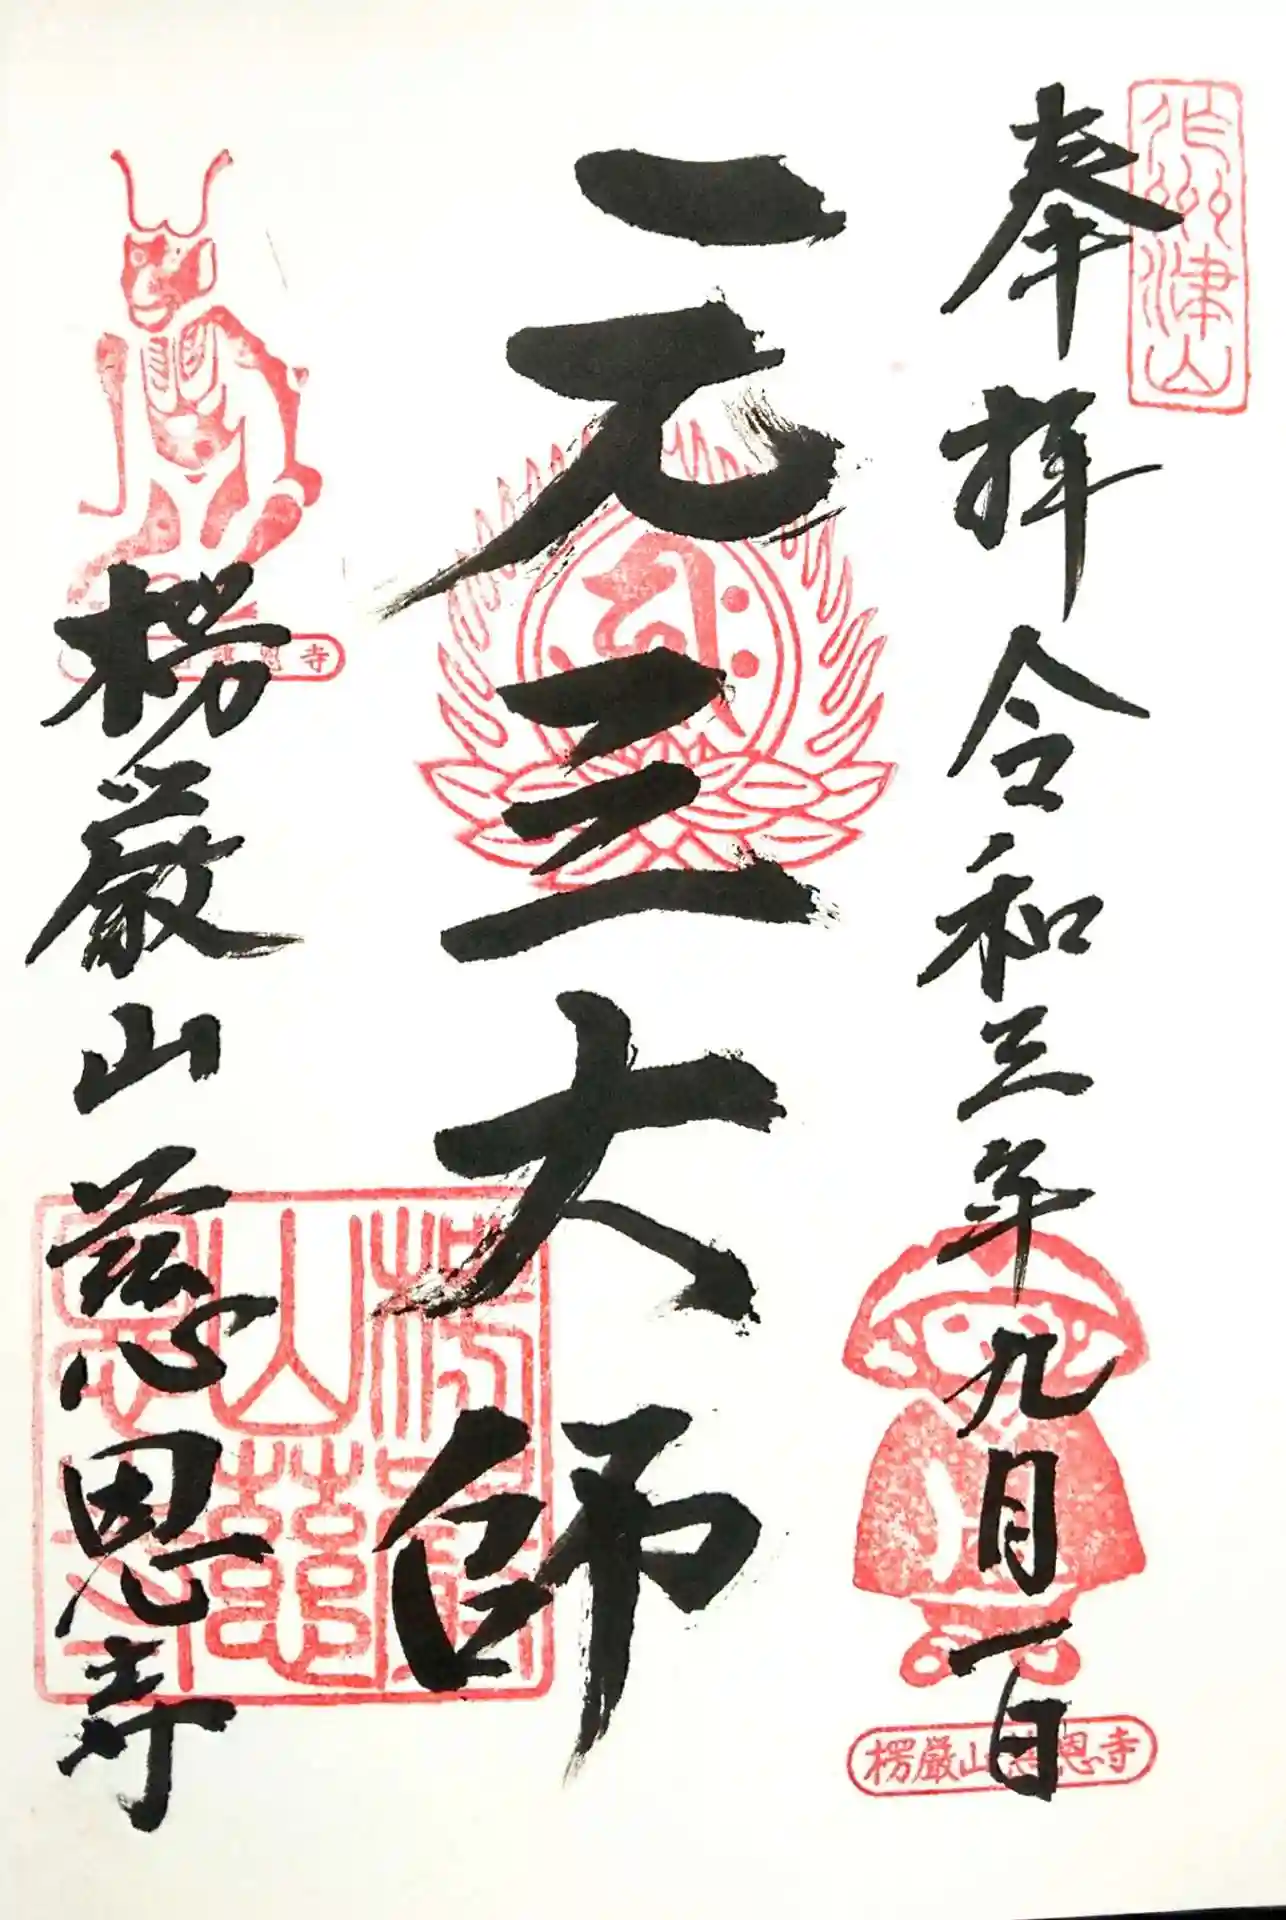 作州津山
奉拝 令和三年九月一日
楞厳山慈恩寺
元三大師
楞厳山慈恩寺
楞厳山慈恩寺
恩寺